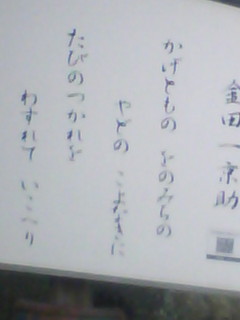 金田一京助
かげともの をのみちの
やどの こよなきに
たびのつかれを
わすれて いこへり